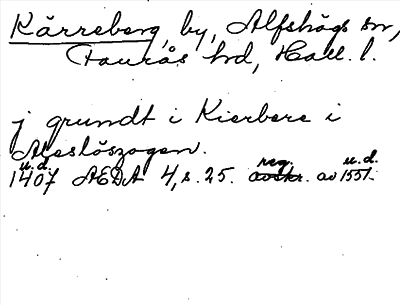 Kärreberg, by, Alfshögs sn,
Faurås hd, Hall. l.
j grundt i Kierbere i
Aleshöszogen.
u.d. reg. u.d.
1407 AEDA 4, s. 25. avskr. av 1551.